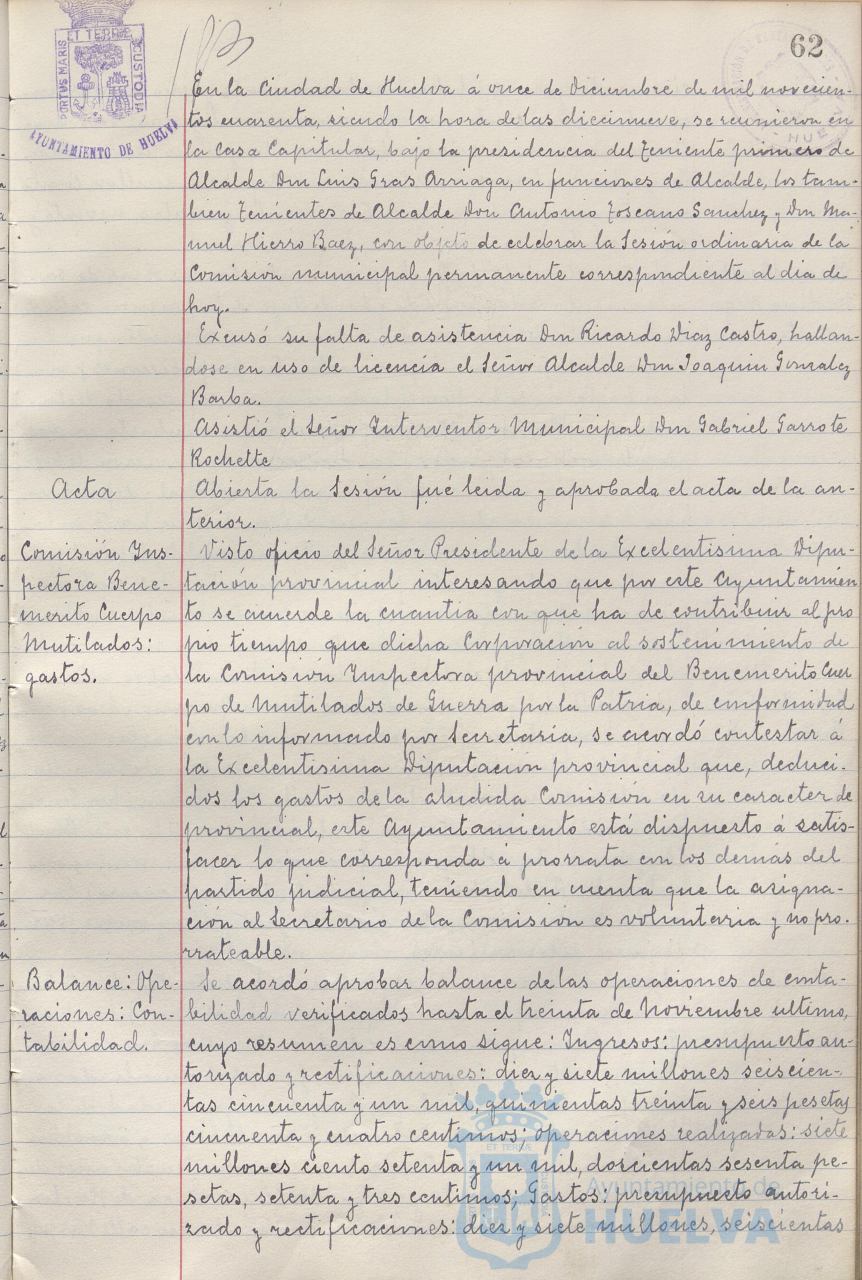 62
PORTVS MARIS
ET TERRE
CUSTODIA
AYUNTAMIENTO DE HUELVA
En la Ciudad de Huelva á once de Diciembre de mil novecien-
tos cuarenta, siendo la hora de las diecinueve, se reunieron en
la Casa Capitular, bajo la presidencia del Teniente primero de
Alcalde Don Luis Gras Arriaga, en funciones de Alcalde, los tam-
bien Tenientes de Alcalde Don Antonio Toscano Sanchez y Don Ma-
nuel Hierro Baez, con objeto de celebrar la Sesión ordinaria de la
Comisión municipal permanente correspondiente al dia de
hoy.
Excusó su falta de asistencia Don Ricardo Diaz Castro, hallan-
dose en uso de licencia el Señor Alcalde Don Joaquin Gonzalez
Barba.
Asistió el Señor Interventor Municipal Don Gabriel Garrote
Rochette
Acta
Abierta la Sesión fué leida y aprobada el acta de la an-
terior.
Comisión Ins-
pectora Bene-
merito Cuerpo
Mutilados:
gastos.
Visto oficio del Señor Presidente de la Excelentisima Dipu-
tación provincial interesando que por este Ayuntamien
to se acuerde la cuantia con que ha de contribuir al pro
pio tiempo que dicha Corporación al sostenimiento de
la Comisión Inspectora provincial del Benemerito Cuer
po de Mutilados de Guerra por la Patria, de comformidad
con lo informado por Secretaria, se acordó contestar á
la Excelentisima Diputacion provincial que, deduci-
dos los gastos de la aludida Comisión en su caracter de
provincial, este Ayuntamiento está dispuesto á satis-
facer lo que corresponda á prorrata con los demás del
partido judicial, teniendo en cuenta que la asigna-
ción al Secretario de la Comisión es voluntaria y no pro-
rrateable.
Balance: Ope-
raciones: Con-
tabilidad.
Se acordó aprobar balance de las operaciones de conta-
bilidad verificados hasta el treinta de Noviembre ultimo,
cuyo resumen es como sigue: Ingresos: presupuesto au-
torizado y rectificaciones: diez y siete millones seiscien-
tas cincuenta y un mil, quinientas treinta y seis pesetas
cincuenta y cuatro centimos; operaciones realizadas: siete
millones ciento setenta y un mil, doscientas sesenta pe-
setas, setenta y tres centimos; Gastos: presupuesto autori-
zado y rectificaciones: diez y siete millones, seiscientas
Ayuntamiento de
HUELVA